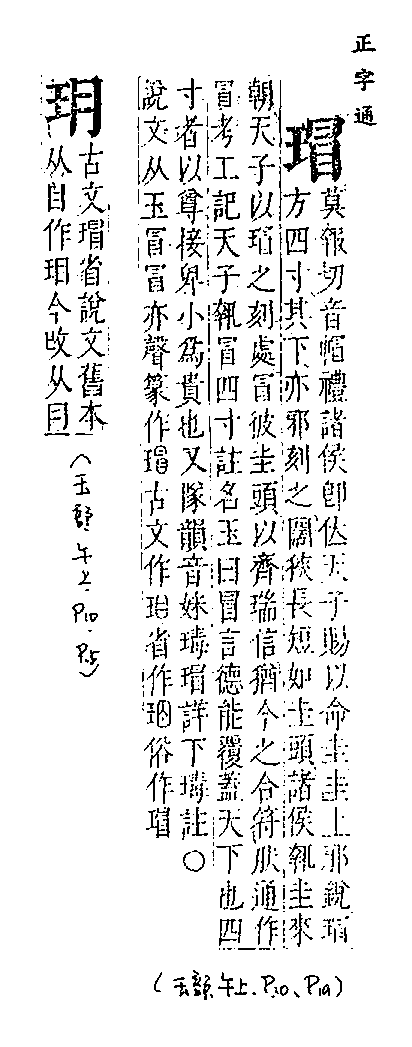 正字通
瑁
莫報切音帽禮諸侯卽位天子賜以命圭圭上邪銳瑁
方四寸其下亦邪刻之闊狹長短如圭頭諸侯執圭來
朝天子以瑁之刻處冒彼圭頭以齊瑞信猶今之合符肰通作
冒考工記天子執冒四寸註名玉曰冒言德能覆蓋天下也四
寸者以尊接卑小爲貴也又隊韻音妹瑇瑁詳下瑇註○
說文从玉冒冒亦聲篆作瑁古文作珇省作珇俗作瑁
玥
古文瑁省說文舊本
从目作珇今攷从冃
(玉部午上.P10.P.5)
(玉部午上.P.20、P19)